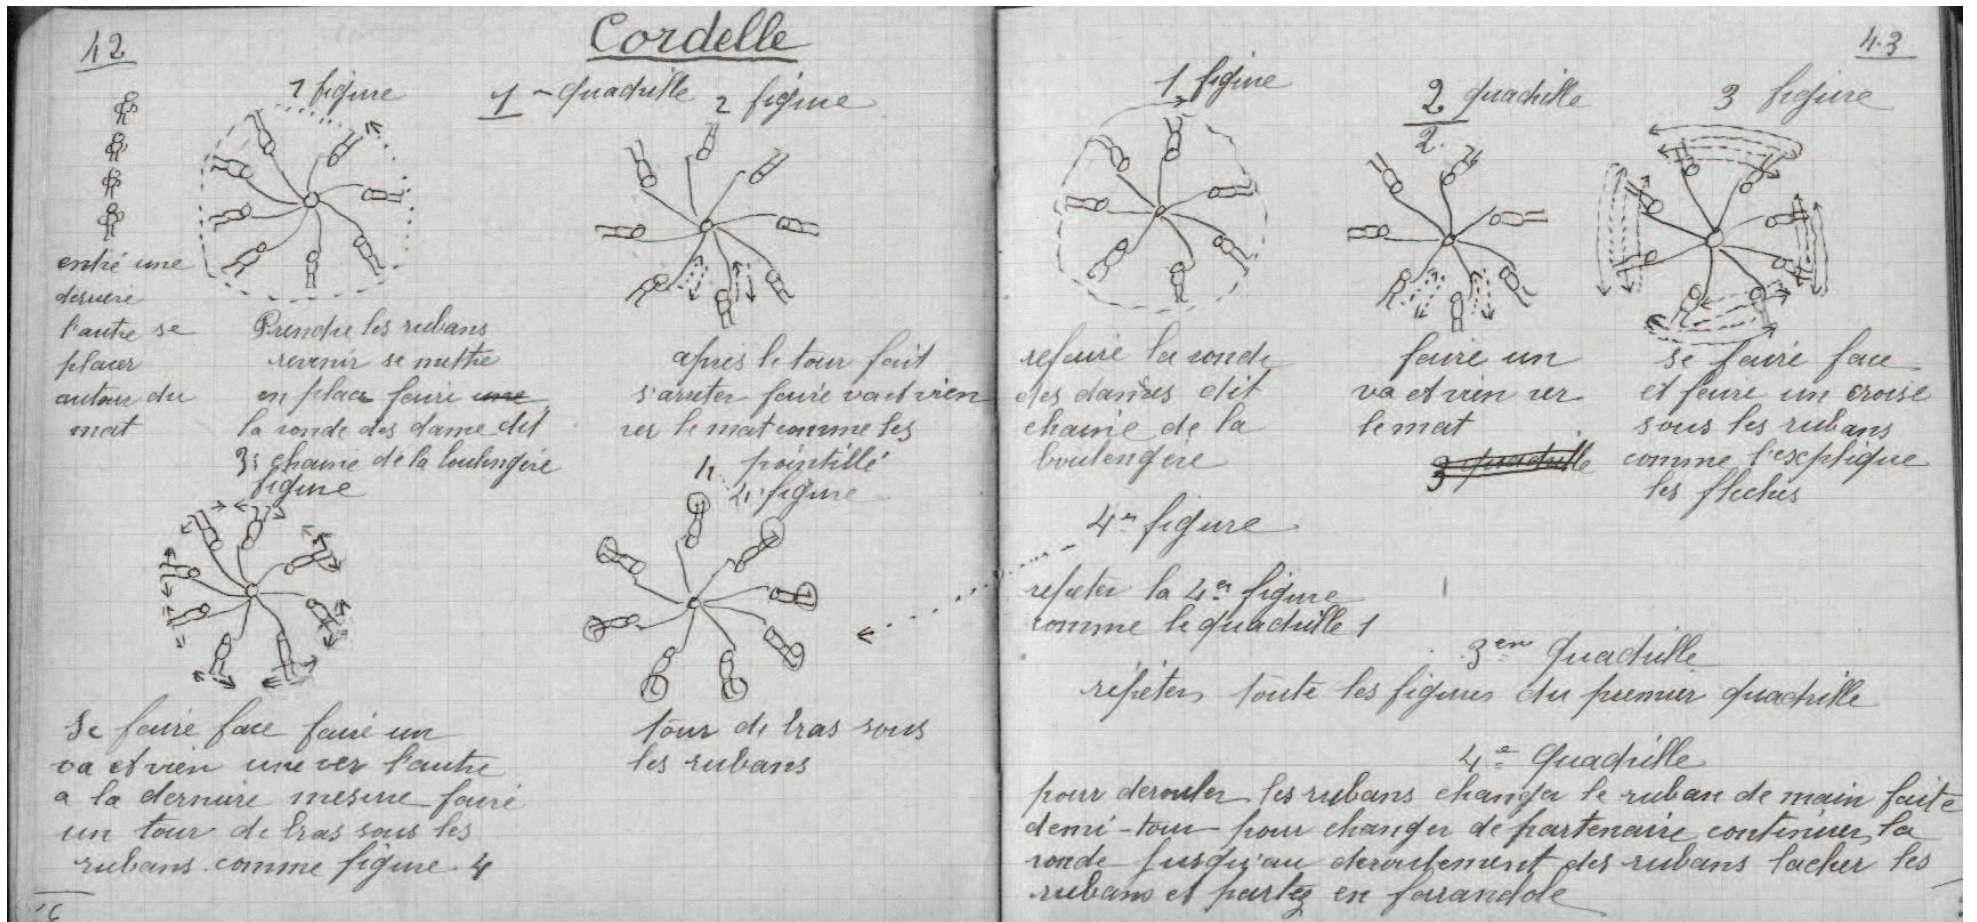 42
Cordelle
1 figure
1 - quadrille
2 figure
entré une
derriere
l'autre se
placer
autour du
mat
Prendre les rubans
revenir se mettre
en place faire une
la ronde des dame dit
chaine de la boulengère
après le tour fait
s'arreter faire va et vien
ver le mat comme les
pointillé
3e figure
4e figure
Se faire face faire un
va et vien une ver l'autre
a la dernière mesure faire
un tour de bras sous les
rubans comme figure 4
tour de bras sous
les rubans
43
1 figure
2 quadrille
2.
3 figure
refaire la ronde
des dames dit
chaine de la
boulengere
faire un
va et vien ver
le mat
3 quadrille
se faire face
et faire un croise
sous les rubans
comme l'explique
les fleches
4e figure
repeter la 4e figure
comme le quadrille 1
3em Quadrille
répéter toute les figures du premier quadrille
4e Quadrille
pour derouler les rubans changer le ruban de main faite
demi-tour pour changer de partenaire continuer la
ronde jusqu'au deroulement des rubans lacher les
rubans et partez en farrandole